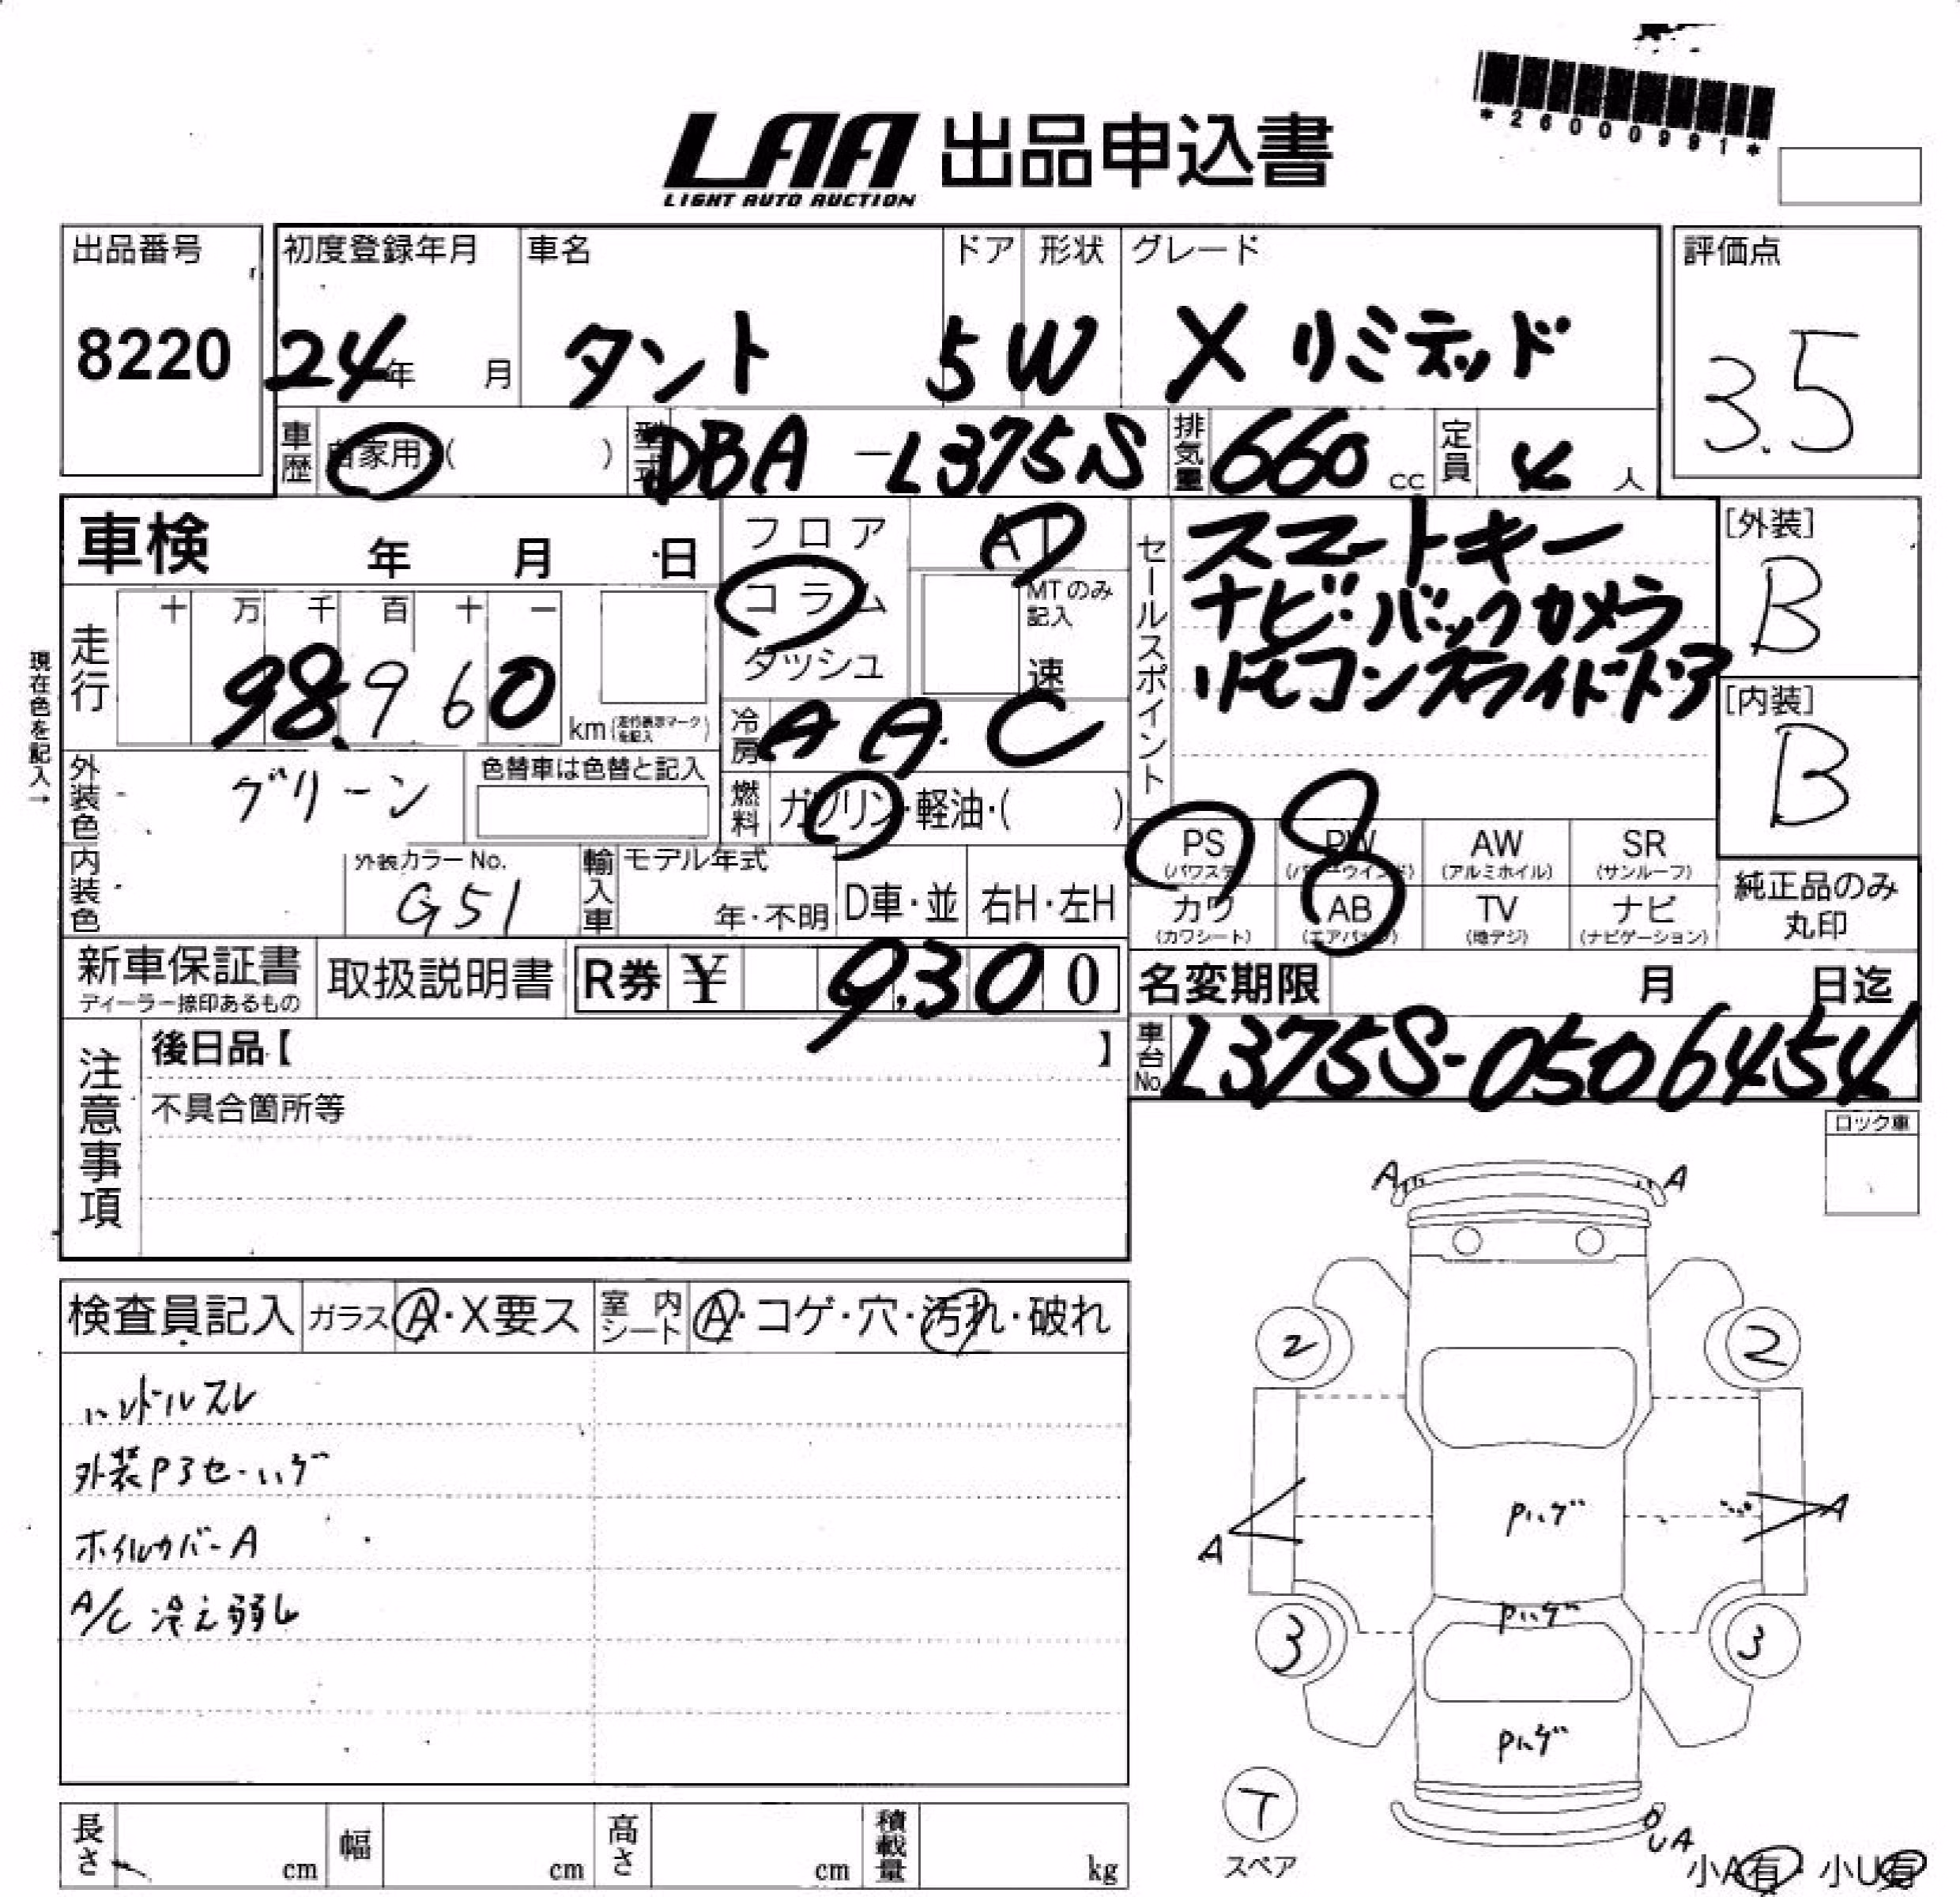 *26000991*
LAA 出品申込書
LIGHT AUTO AUCTION
出品番号
8220
初度登録年月 車名 ドア 形状 グレード
24年 月 タント 5 W X リミテッド
評価点
3.5
車歴 自家用・( ) 型式 DBA-L375S 排気量 660 cc 定員 4 人
車検 年 月 日
フロア AT
コラム
ダッシュ
MTのみ記入
速
セールスポイント
スマートキー
ナビ・バックカメラ
リモコンスライドドア
[外装]
B
[内装]
B
現在色を記入→
走行 十 万 千 百 十 一
98,960 km (走行表示マークを記入)
冷房 A A.C
外装色 グリーン 色替車は色替と記入
燃料 ガソリン・軽油・( )
内装色 外装カラーNo. G51
輸入車 モデル年式 年・不明 D車・並 右H・左H
PS (パワステ) PW (パワーウインド) AW (アルミホイル) SR (サンルーフ)
カワ (カワシート) AB (エアバッグ) TV (地デジ) ナビ (ナビゲーション)
純正品のみ
丸印
新車保証書 ディーラー捺印あるもの 取扱説明書 R券 ¥ 9,300
名変期限 月 日迄
車台No. L375S-0506454
注意事項
後日品【 】
不具合箇所等
ロック車
検査員記入 ガラス A・X要ス 室内シート A・コゲ・穴・汚れ・破れ
ハンドルスレ
外装Pヨセ・ハゲ
ホイルカバーA
A/C 冷え弱し
A A
2 2
Pハゲ
A A
Pハゲ
3 3
Pハゲ
T
スペア
UA
小A有・小U有
長さ cm 幅 cm 高さ cm 積載量 kg